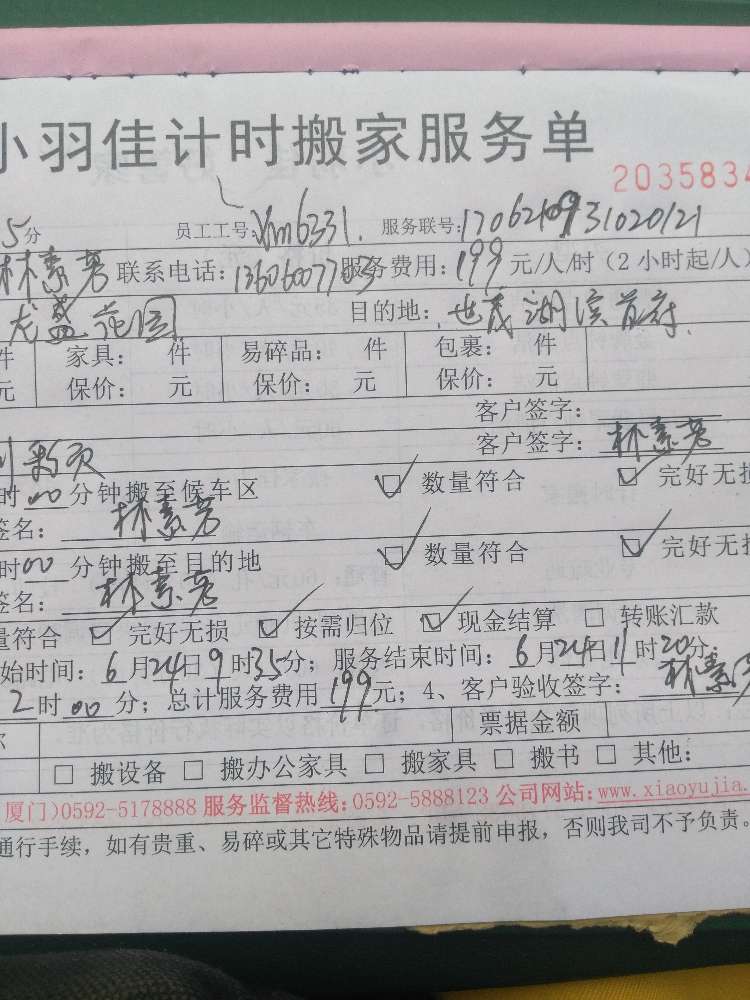 小羽佳计时搬家服务单
2035834
5分 员工工号: 服务联号:
林素芳 联系电话: 服务费用:199元/人/时(2小时起/人)
龙盛花园 目的地:世茂湖滨首府
件 家具: 件 易碎品: 件 包裹: 件
元 保价: 元 保价: 元 保价: 元
客户签字:
客户签字:林素芳
时00分钟搬至候车区 ☑ 数量符合 ☑ 完好无损
签名: 林素芳
时00分钟搬至目的地 ☑ 数量符合 ☑ 完好无损
签名: 林素芳
量符合 ☑ 完好无损 ☑ 按需归位 ☑ 现金结算 □ 转账汇款
始时间:6月24日9时35分;服务结束时间:6月24日11时20分
2时00分;总计服务费用199元;4、客户验收签字:林素芳
票据金额
□ 搬设备 □ 搬办公家具 □ 搬家具 □ 搬书 □ 其他:
厦门)0592-5178888 服务监督热线:0592-5888123 公司网站:www.xiaoyujia.
通行手续,如有贵重、易碎或其它特殊物品请提前申报,否则我司不予负责。